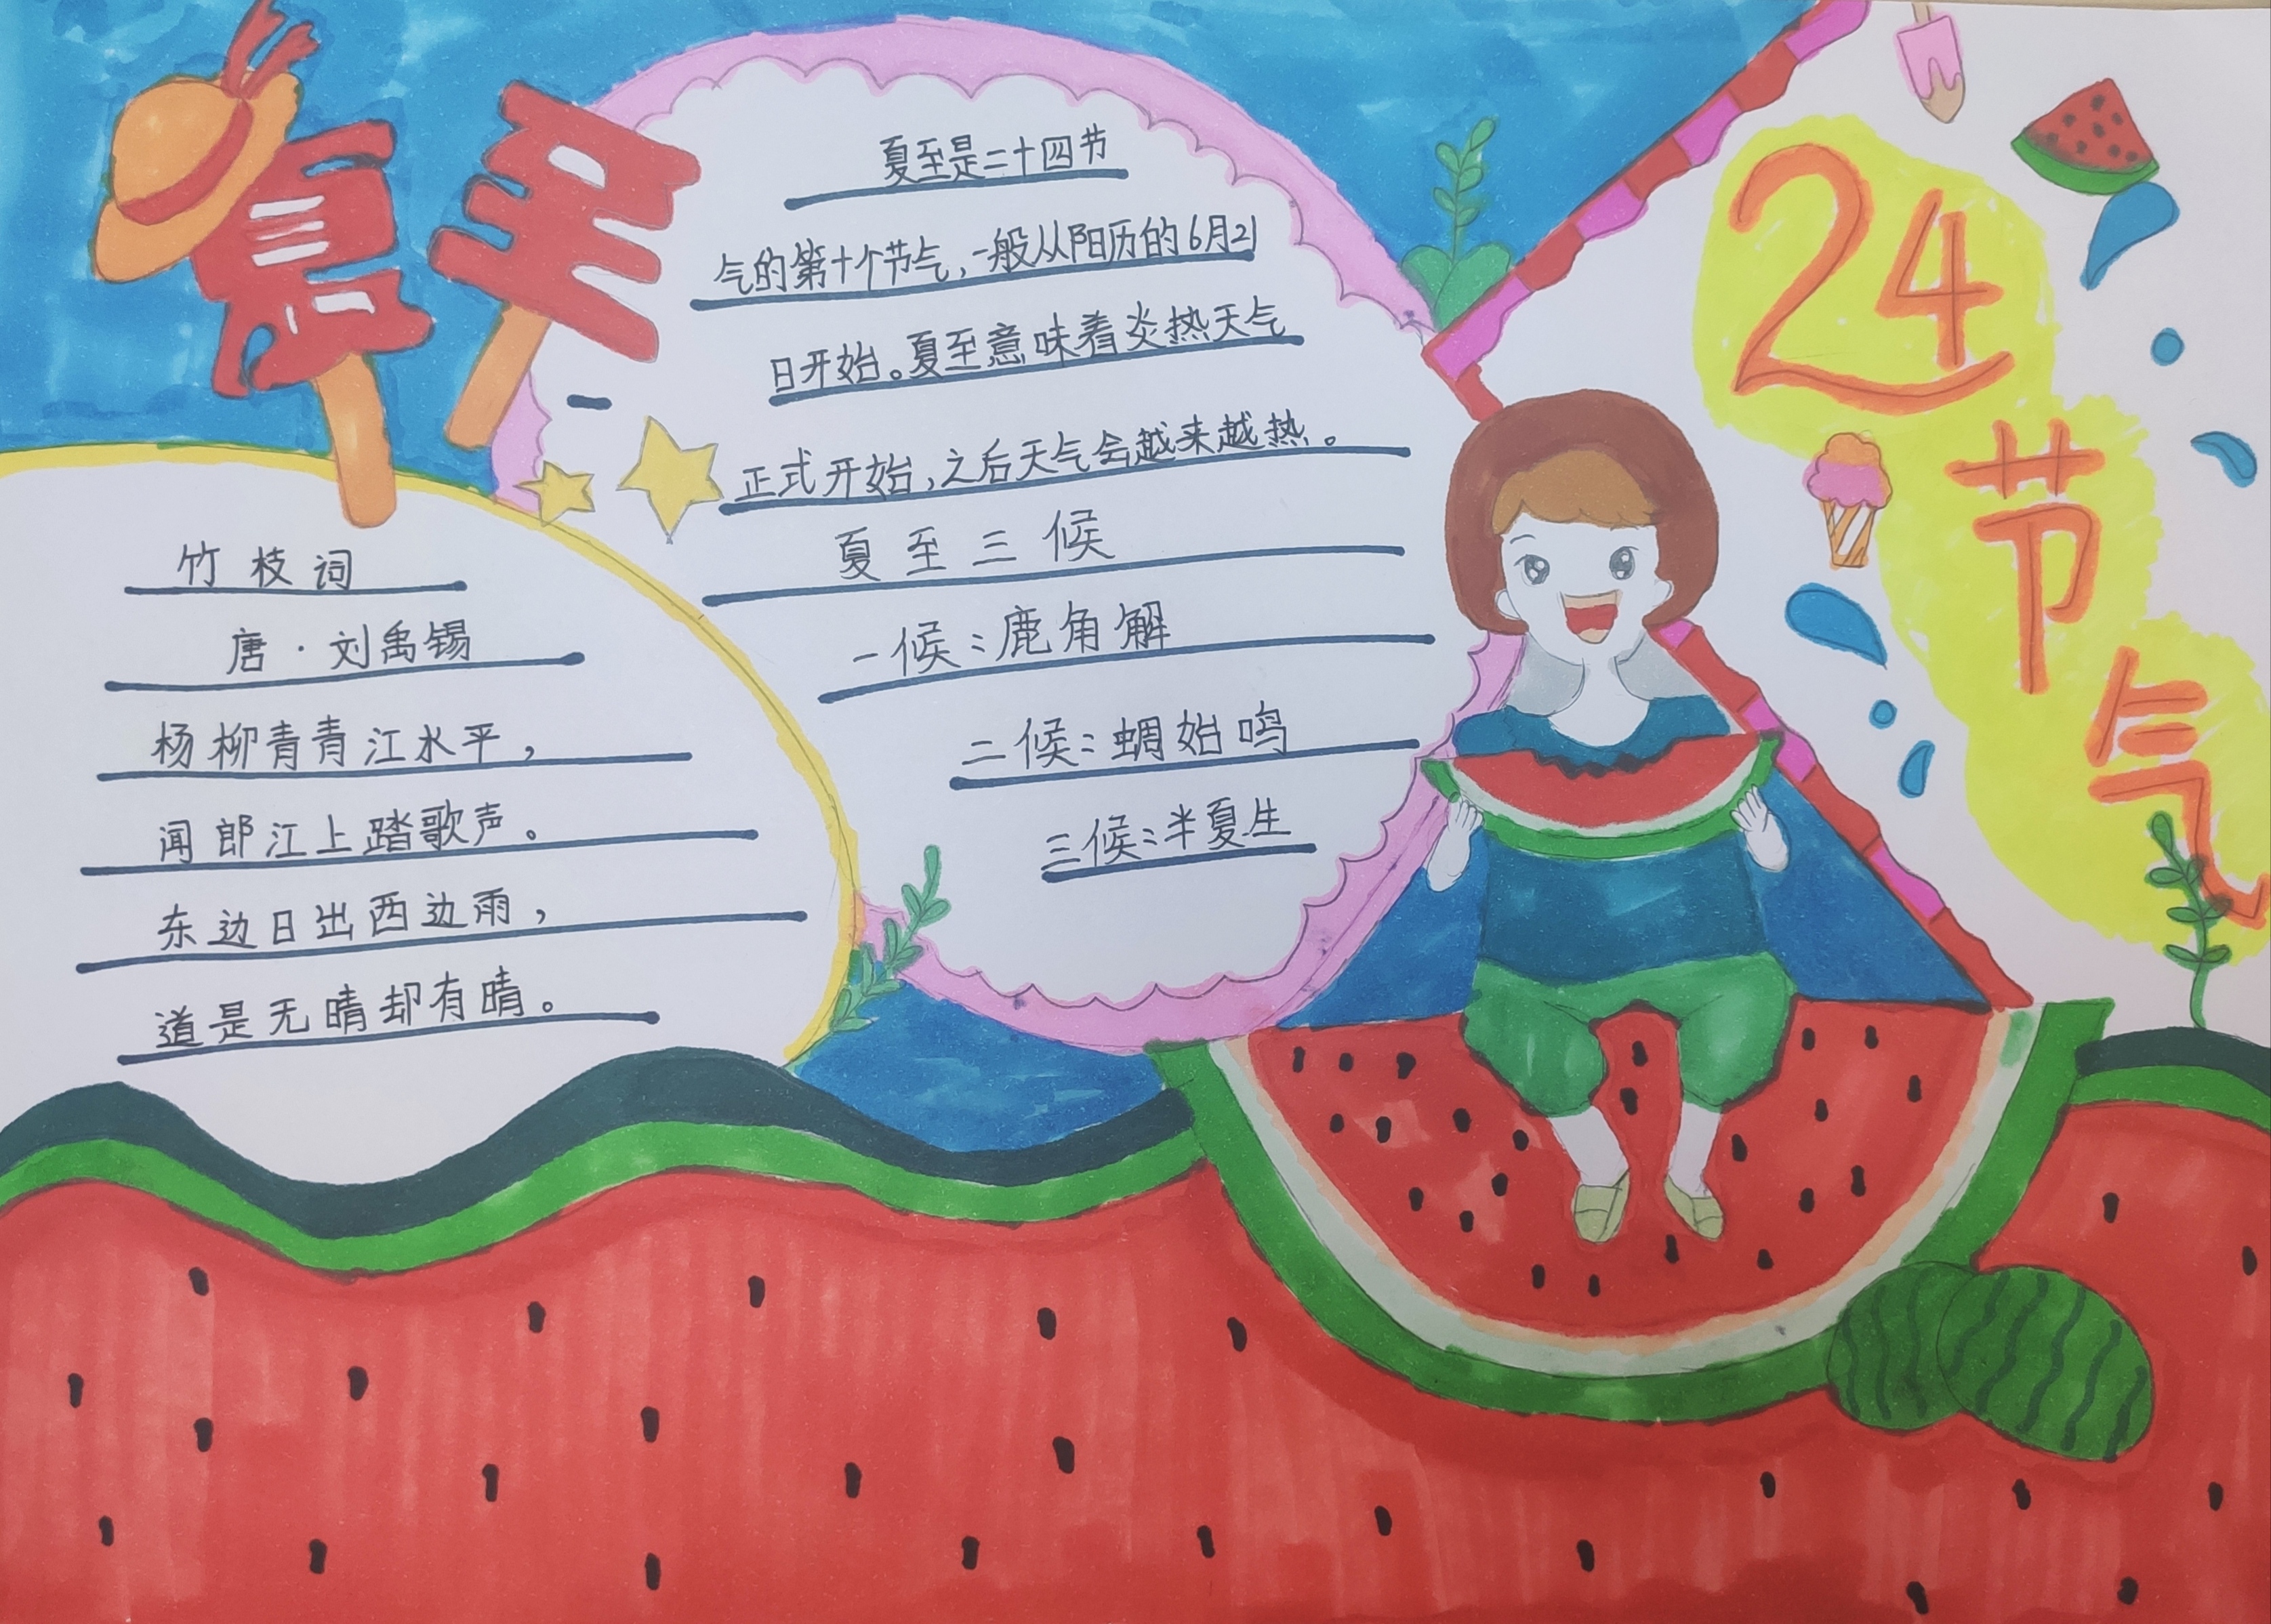 夏至
夏至是二十四节
气的第十个节气,一般从阳历的6月21
日开始。夏至意味着炎热天气
正式开始,之后天气会越来越热。
夏至三候
一候:鹿角解
二候:蜩始鸣
三候:半夏生
竹枝词
唐·刘禹锡
杨柳青青江水平,
闻郎江上踏歌声。
东边日出西边雨,
道是无晴却有晴。
24
节
气